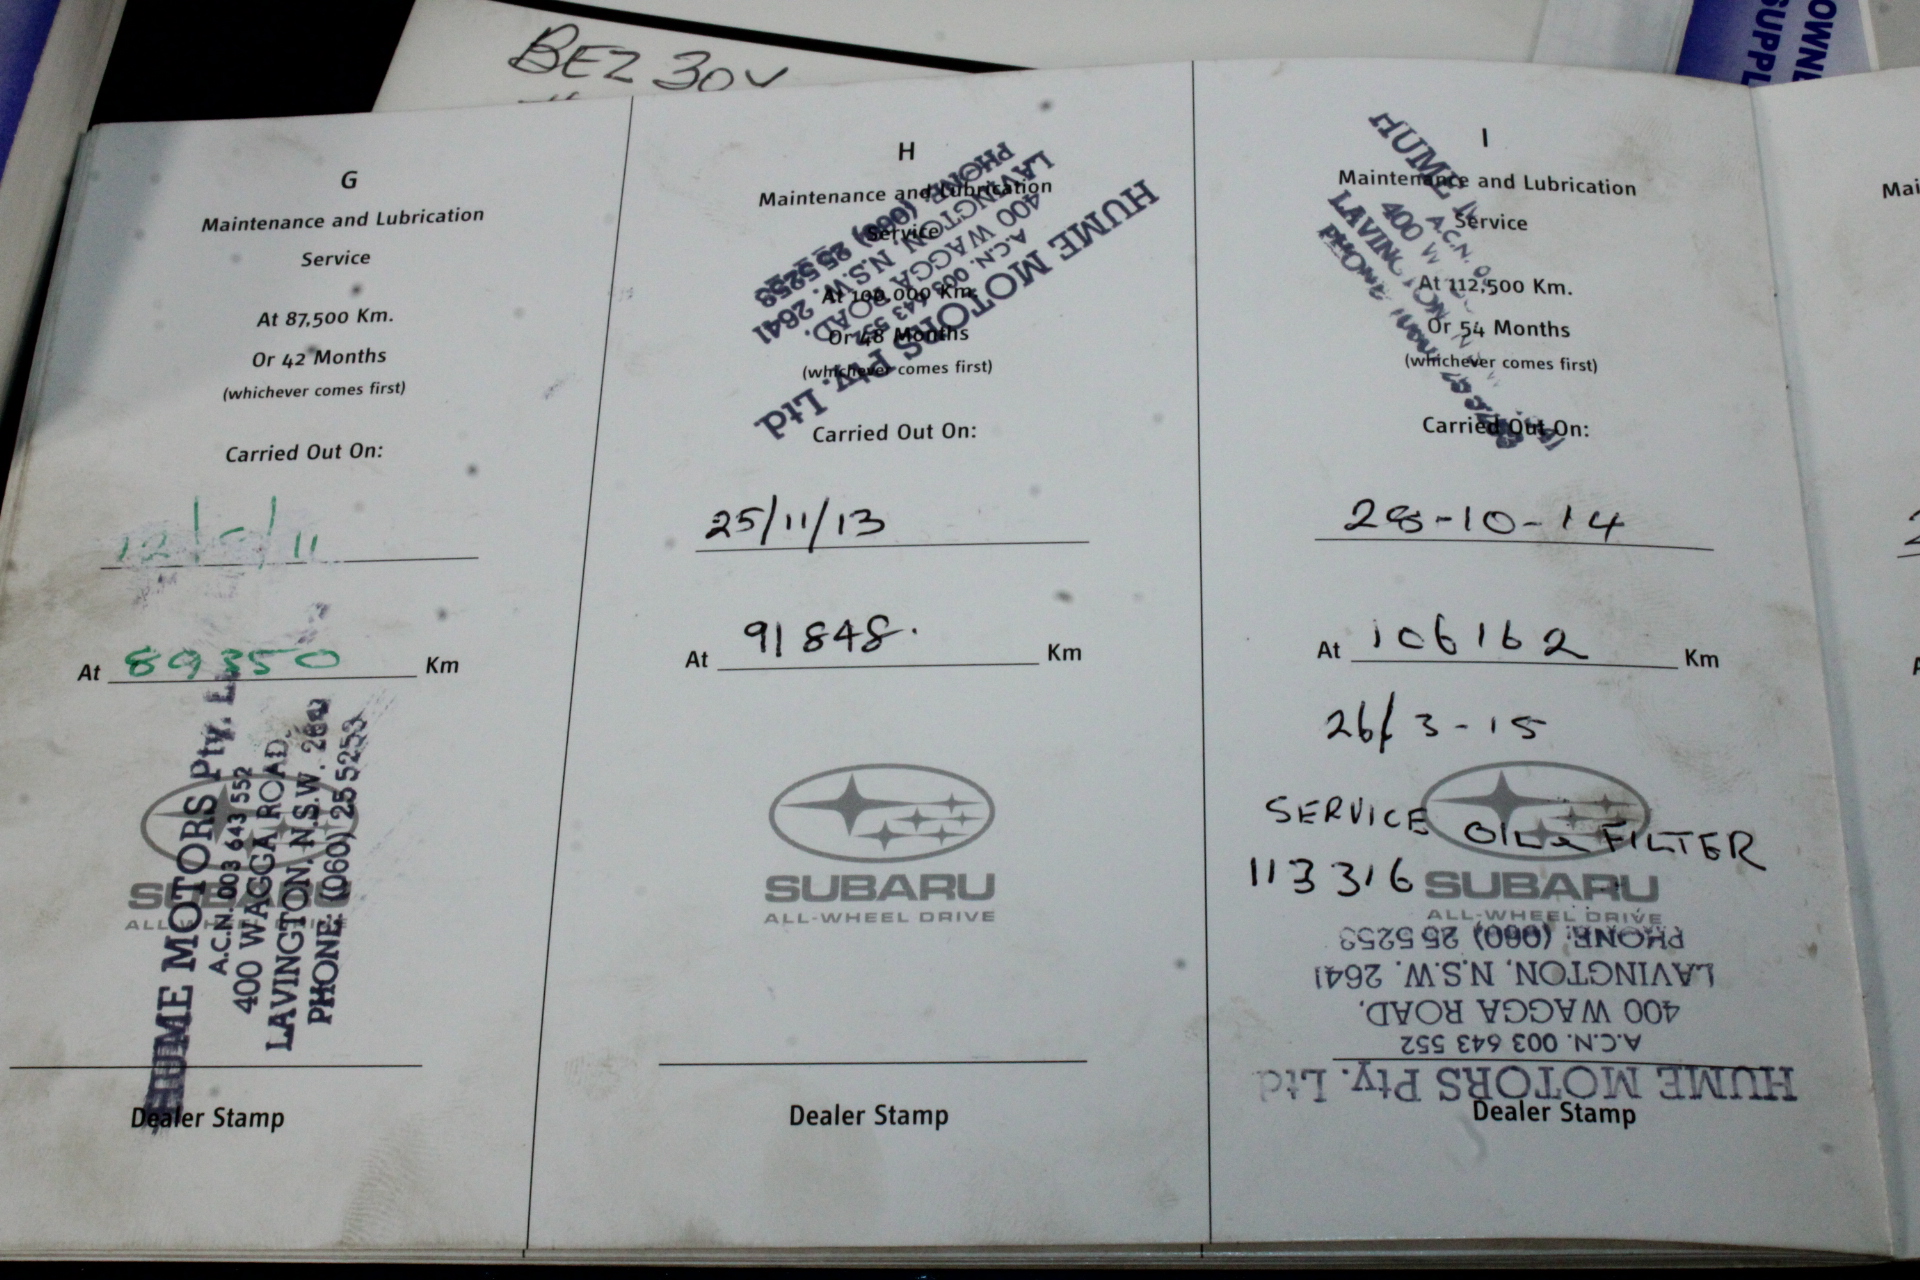 BEZ 30V
OWNE
SUPPL
G
Maintenance and Lubrication
Service
At 87,500 Km.
Or 42 Months
(whichever comes first)
Carried Out On:
At 89350 Km
HUME MOTORS Pty. L
A.C.N. 003 643 552
400 WAGGA ROAD.
LAVINGTON, N.S.W.
PHONE: (060) 25 5253
SUBARU
ALL-WHEEL DRIVE
Dealer Stamp
H
Maintenance and Lubrication
Service
At 100,000 Km.
Or 48 Months
(whichever comes first)
HUME MOTORS Pty. Ltd
A.C.N. 003 643 552
400 WAGGA ROAD.
LAVINGTON, N.S.W. 2641
PHONE: (060) 25 5253
Carried Out On:
25/11/13
At 91848. Km
SUBARU
ALL-WHEEL DRIVE
Dealer Stamp
I
Maintenance and Lubrication
Service
At 112,500 Km.
Or 54 Months
(whichever comes first)
HUME
A.C.N.
400 W
LAVINGTON
PHONE
Carried Out On:
28-10-14
At 106162 Km
26/3-15
SERVICE OIL & FILTER
113316
SUBARU
ALL-WHEEL DRIVE
HUME MOTORS Pty. Ltd
A.C.N. 003 643 552
400 WAGGA ROAD.
LAVINGTON, N.S.W. 2641
PHONE: (060) 25 5253
Dealer Stamp
Mai